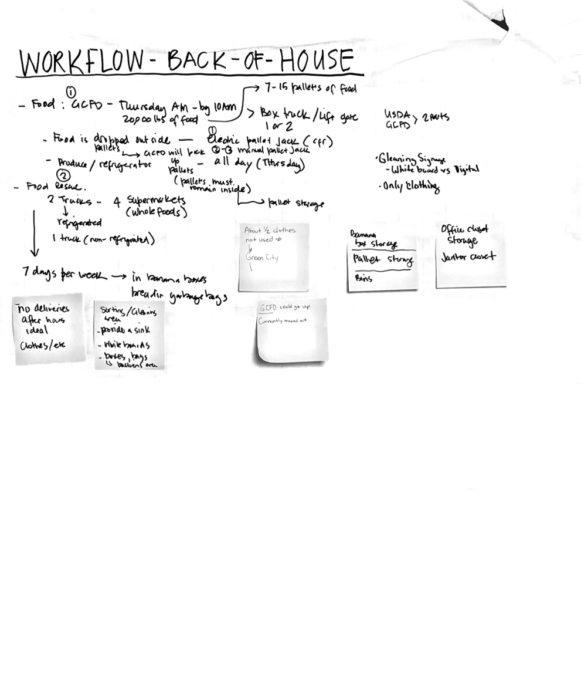 WORKFLOW - BACK-OF-HOUSE
①
- Food: GCFD - Thursday AM - by 10AM
20,000 lbs of food
→ 7-15 pallets of food
> Box truck/Lift gate
1 or 2
USDA
GCFD > 2 parts
- Food is dropped outside — ① Electric pallet jack (
pallets
↳ GCFD will pick up pallets
②-③ manual pallet jack
- Produce/refrigerator — all day (Thursday)
(pallets must remain inside)
↳ pallet storage
②
- Food Rescue.
2 Trucks - 4 Supermarkets
(Whole foods)
↓
refrigerated
1 truck (non-refrigerated)
7 days per week → in banana boxes
bread in garbage bags
· Gleaning Signage
- White board vs Digital
· Only clothing
About 1/2 clothes
not used →
↓
Green City
Banana
box storage
Pallet storage
Bins
Office closet
Storage
Janitor closet
no deliveries
after hours
ideal
Clothes/etc
Sorting/Gleaning
area
- provide a sink
- white boards
- boxes, bags
GCFD could go up
Currently maxed out